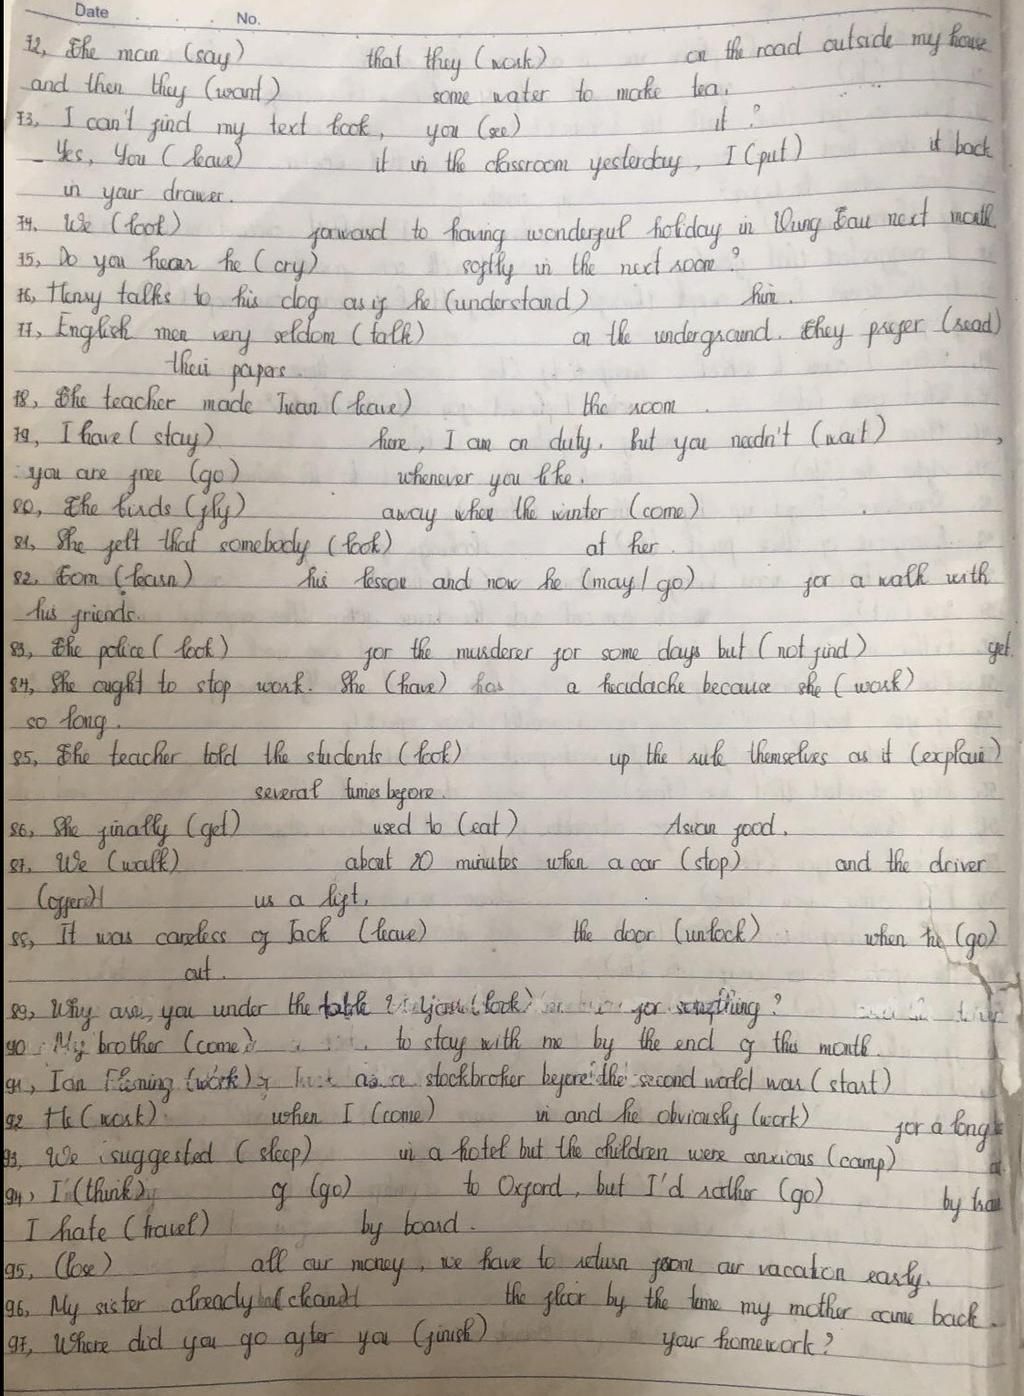 Date No.
72, The man (say) that they (work) on the road outside my house
and then they (want) some water to make tea.
73, I can't find my text book, you (see) it ?
_ Yes, You ( leave) it in the classroom yesterday, I (put) it back
in your drawer.
74. We (look) forward to having wonderful holiday in Vung Tau next month
75, Do you hear he ( cry) softly in the next room ?
76, Henry talks to his dog as if he (understand) him.
77, English men very seldom ( talk) on the underground. They prefer (read)
their papers.
78, The teacher made Juan ( leave) the room .
79, I have ( stay) here, I am on duty. But you needn't (wait) ,
you are free (go) whenever you like.
80, The birds (fly) away when the winter (come) .
81, She felt that somebody ( look) at her.
82, Tom (learn) his lesson and now he (may / go) for a walk with
his friends.
83, The police ( look) for the murderer for some days but ( not find) yet.
84, She ought to stop work. She (have) has a headache because she ( work)
so long .
85, The teacher told the students ( look) up the rule themselves as it (explain)
several times before.
86, She finally (get) used to (eat) Asian food.
87, We (walk) about 20 minutes when a car (stop) and the driver
(offer) us a lift.
88, It was careless of Jack (leave) the door (unlock) when he (go)
out.
89, Why are you under the table ? you (look) for something ?
90 My brother (come) to stay with me by the end of this month.
91, Ian Fleming (work) as a stockbroker before the second world was (start)
92 He (work) when I (come) in and he obviously (work) for a long
93, We suggested ( sleep) in a hotel but the children were anxious (camp)
94, I (think) of (go) to Oxford, but I'd rather (go) by
I hate ( travel) by board .
95, (lose) all our money, we have to return from our vacation early.
96, My sister already (clean) the floor by the time my mother came back.
97, Where did you go after you (finish) your homework ?